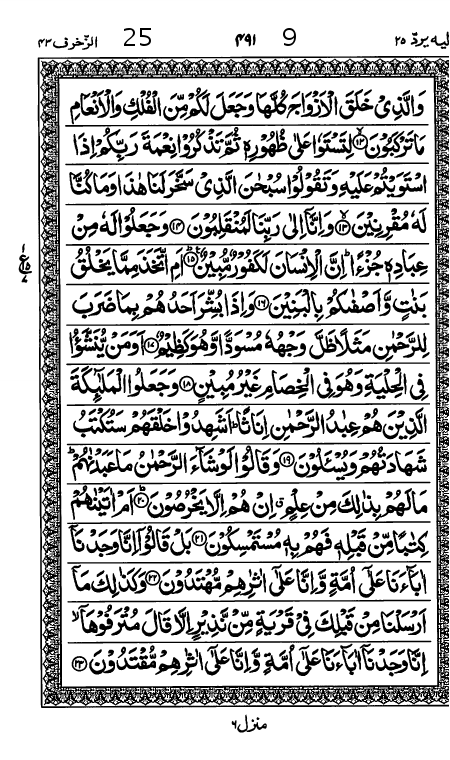 اليه يردّ ٢٥ 9 ٤٩١ 25 الزّخرف ٤٣
وَالَّذِىْ خَلَقَ الْاَزْوَاجَ كُلَّهَا وَجَعَلَ لَكُمْ مِّنَ الْفُلْكِ وَالْاَنْعَامِ
مَا تَرْكَبُوْنَ ۙ﴿۱۲﴾ لِتَسْتَوٗا عَلٰى ظُهُوْرِهٖ ثُمَّ تَذْكُرُوْا نِعْمَةَ رَبِّكُمْ اِذَا
اسْتَوَيْتُمْ عَلَيْهِ وَتَقُوْلُوْا سُبْحٰنَ الَّذِىْ سَخَّرَ لَنَا هٰذَا وَمَا كُنَّا
لَهٗ مُقْرِنِيْنَ ۙ﴿۱۳﴾ وَاِنَّاۤ اِلٰى رَبِّنَا لَمُنْقَلِبُوْنَ ﴿۱۴﴾ وَجَعَلُوْا لَهٗ مِنْ
عِبَادِهٖ جُزْءًا ؕ اِنَّ الْاِنْسَانَ لَكَفُوْرٌ مُّبِيْنٌ ؕ﴿۱۵﴾ اَمِ اتَّخَذَ مِمَّا يَخْلُقُ
بَنٰتٍ وَّاَصْفٰىكُمْ بِالْبَنِيْنَ ﴿۱۶﴾ وَاِذَا بُشِّرَ اَحَدُهُمْ بِمَا ضَرَبَ
لِلرَّحْمٰنِ مَثَلًا ظَلَّ وَجْهُهٗ مُسْوَدًّا وَّهُوَ كَظِيْمٌ ﴿۱۷﴾ اَوَمَنْ يُّنَشَّؤُا
فِى الْحِلْيَةِ وَهُوَ فِى الْخِصَامِ غَيْرُ مُبِيْنٍ ﴿۱۸﴾ وَجَعَلُوا الْمَلٰٓئِكَةَ
الَّذِيْنَ هُمْ عِبٰدُ الرَّحْمٰنِ اِنَاثًا ؕ اَشَهِدُوْا خَلْقَهُمْ ؕ سَتُكْتَبُ
شَهَادَتُهُمْ وَيُسْئَلُوْنَ ﴿۱۹﴾ وَقَالُوْا لَوْ شَآءَ الرَّحْمٰنُ مَا عَبَدْنٰهُمْ ؕ
مَا لَهُمْ بِذٰلِكَ مِنْ عِلْمٍ ۗ اِنْ هُمْ اِلَّا يَخْرُصُوْنَ ؕ﴿۲۰﴾ اَمْ اٰتَيْنٰهُمْ
كِتٰبًا مِّنْ قَبْلِهٖ فَهُمْ بِهٖ مُسْتَمْسِكُوْنَ ﴿۲۱﴾ بَلْ قَالُوْۤا اِنَّا وَجَدْنَاۤ
اٰبَآءَنَا عَلٰٓى اُمَّةٍ وَّاِنَّا عَلٰٓى اٰثٰرِهِمْ مُّهْتَدُوْنَ ﴿۲۲﴾ وَكَذٰلِكَ مَاۤ
اَرْسَلْنَا مِنْ قَبْلِكَ فِىْ قَرْيَةٍ مِّنْ نَّذِيْرٍ اِلَّا قَالَ مُتْرَفُوْهَاۤ ۙ
اِنَّا وَجَدْنَاۤ اٰبَآءَنَا عَلٰٓى اُمَّةٍ وَّاِنَّا عَلٰٓى اٰثٰرِهِمْ مُّقْتَدُوْنَ ﴿۲۳﴾
منزل ٦